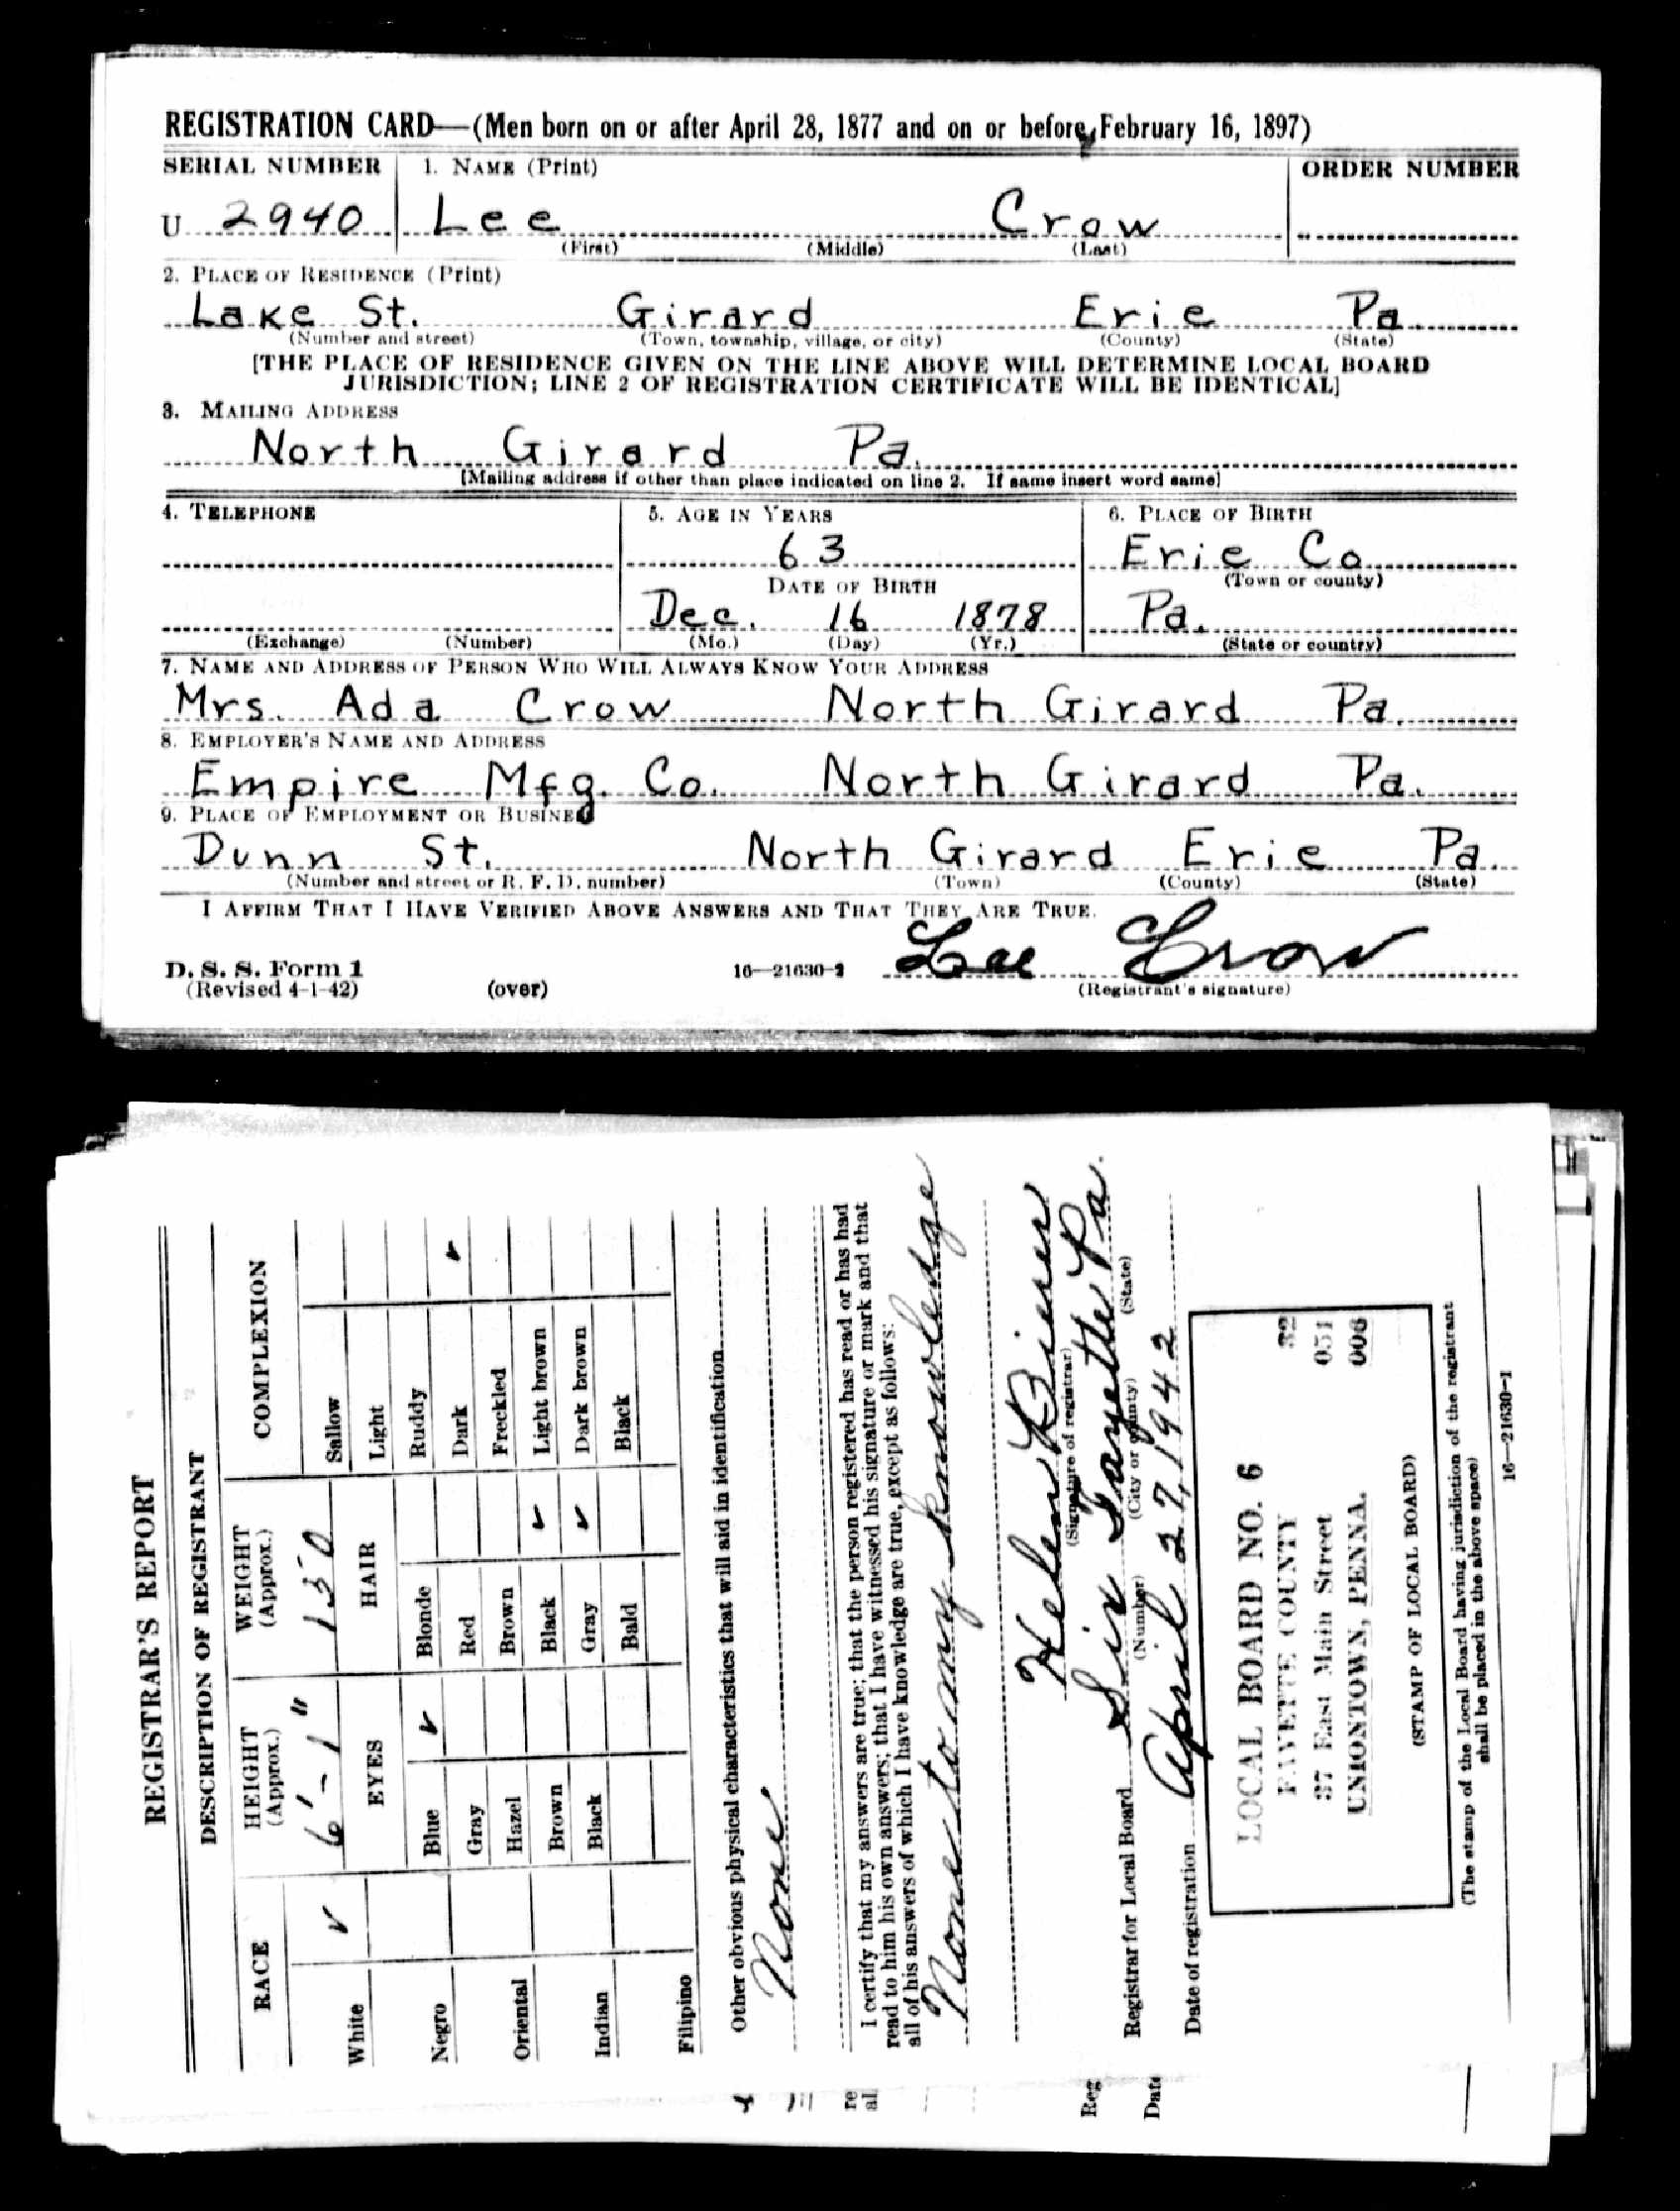 REGISTRATION CARD—(Men born on or after April 28, 1877 and on or before February 16, 1897)
SERIAL NUMBER 1. NAME (Print) ORDER NUMBER
U 2940 Lee Crow
(First) (Middle) (Last)
2. PLACE OF RESIDENCE (Print)
Lake St. Girard Erie Pa.
(Number and street) (Town, township, village, or city) (County) (State)
[THE PLACE OF RESIDENCE GIVEN ON THE LINE ABOVE WILL DETERMINE LOCAL BOARD
JURISDICTION; LINE 2 OF REGISTRATION CERTIFICATE WILL BE IDENTICAL]
3. MAILING ADDRESS
North Girard Pa.
[Mailing address if other than place indicated on line 2. If same insert word same]
4. TELEPHONE 5. AGE IN YEARS 6. PLACE OF BIRTH
63 Erie Co
DATE OF BIRTH (Town or county)
Dec. 16 1878 Pa.
(Exchange) (Number) (Mo.) (Day) (Yr.) (State or country)
7. NAME AND ADDRESS OF PERSON WHO WILL ALWAYS KNOW YOUR ADDRESS
Mrs. Ada Crow North Girard Pa.
8. EMPLOYER'S NAME AND ADDRESS
Empire Mfg. Co. North Girard Pa.
9. PLACE OF EMPLOYMENT OR BUSINESS
Dunn St. North Girard Erie Pa.
(Number and street or R. F. D. number) (Town) (County) (State)
I AFFIRM THAT I HAVE VERIFIED ABOVE ANSWERS AND THAT THEY ARE TRUE.
Lee Crow
D. S. S. Form 1 16—21630-1
(Revised 4-1-42) (over) (Registrant's signature)
REGISTRAR'S REPORT
DESCRIPTION OF REGISTRANT
RACE HEIGHT (Approx.) WEIGHT (Approx.) COMPLEXION
6'-1" 130
White ✓ EYES HAIR Sallow
Light
Negro Blue ✓ Blonde Ruddy
Gray Red Dark ✓
Oriental Hazel Brown Freckled
Brown Black ✓ Light brown
Indian Black Gray ✓ Dark brown
Bald Black
Filipino
Other obvious physical characteristics that will aid in identification
None
I certify that my answers are true; that the person registered has read or has had
read to him his own answers; that I have witnessed his signature or mark and that
all of his answers of which I have knowledge are true, except as follows:
None to my knowledge
Helen
(Signature of registrar)
Registrar for Local Board Six Fayette Pa.
(Number) (City or county) (State)
Date of registration April 27, 1942
LOCAL BOARD NO. 6 32
FAYETTE COUNTY 051
37 East Main Street 006
UNIONTOWN, PENNA.
(STAMP OF LOCAL BOARD)
(The stamp of the Local Board having jurisdiction of the registrant
shall be placed in the above space)
16—21630-1
re
al
Reg
Date